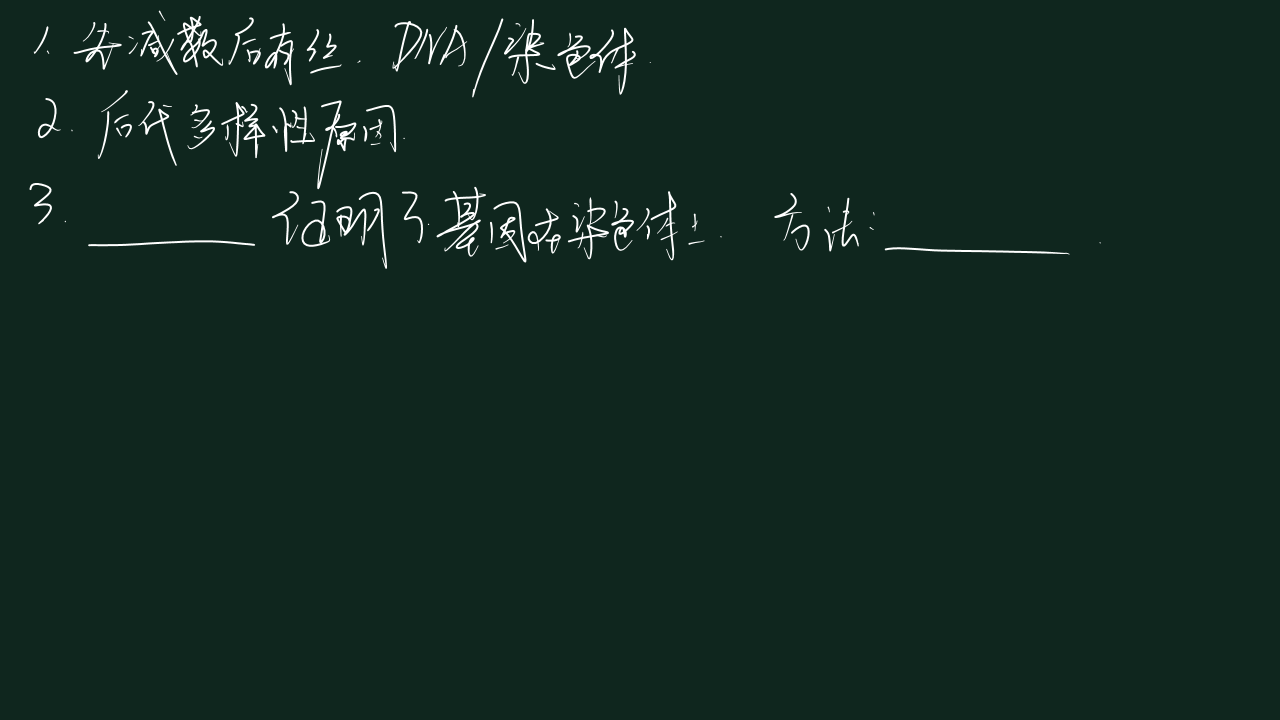 1. 先减数后有丝. DNA/染色体.
2. 后代多样性原因.
3. ________ 证明了基因在染色体上. 方法: ________.